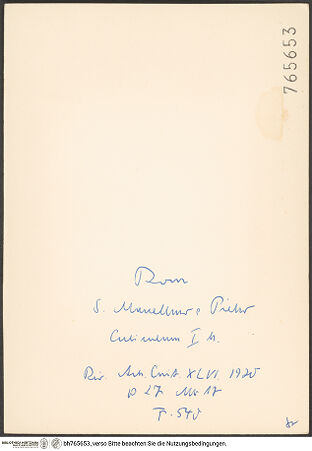 765653
Rom
S. Marcellino e Pietro
I
Riv. Arch. Crist. XLVI 1970
p 27 Nr 17
F. 540
bh765653, verso Bitte beachten Sie die Nutzungsbedingungen.